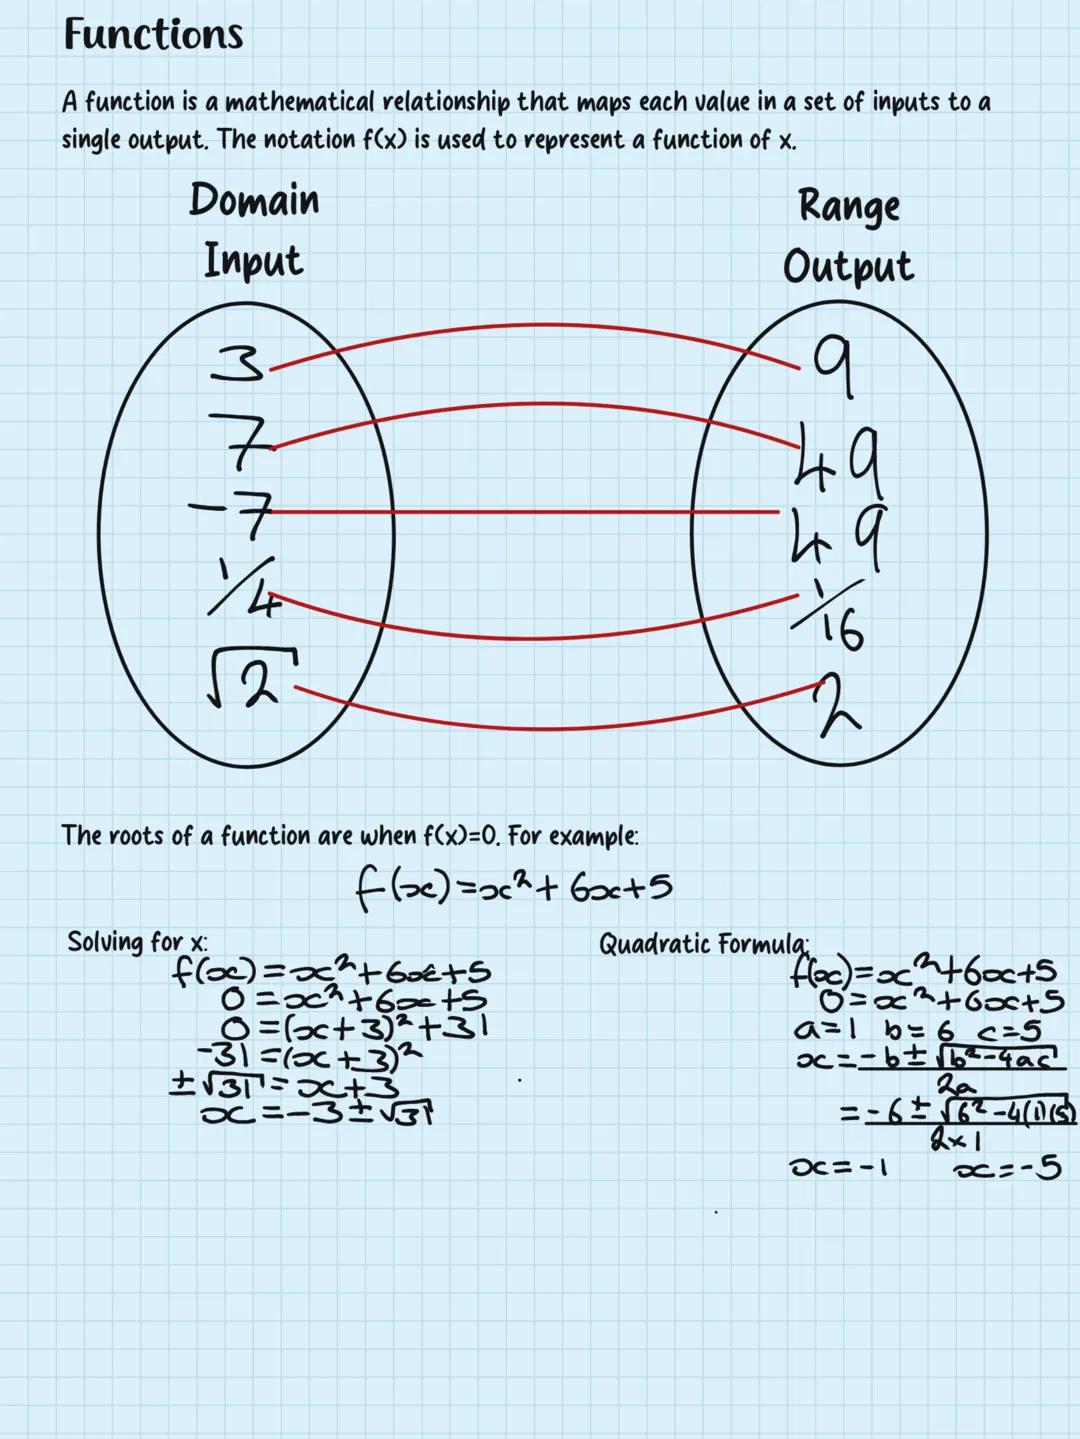 Functions
A function is a mathematical relationship that maps each value in a set of inputs to a
single output. The notation f(x) is used to represent a function of x.
Domain
Input
Range
Output
3
7
-7
1/4
√2
9
49
49
1/16
2
The roots of a function are when f(x)=0. For example:
f(x)=x²+6x+5
Solving for x:
f(x)=x²+6x+5
0=x²+6x+5
0=(x+3)²+31
-31=(x+3)²
±√31=x+3
x=-3±√31
Quadratic Formula:
f(x)=x²+6x+5
0=x²+6x+5
a=1 b=6 c=5
x=-b±√b²-4ac
2a
=-6±√6²-4(1)(5)
2x1
x=-1 x=-5